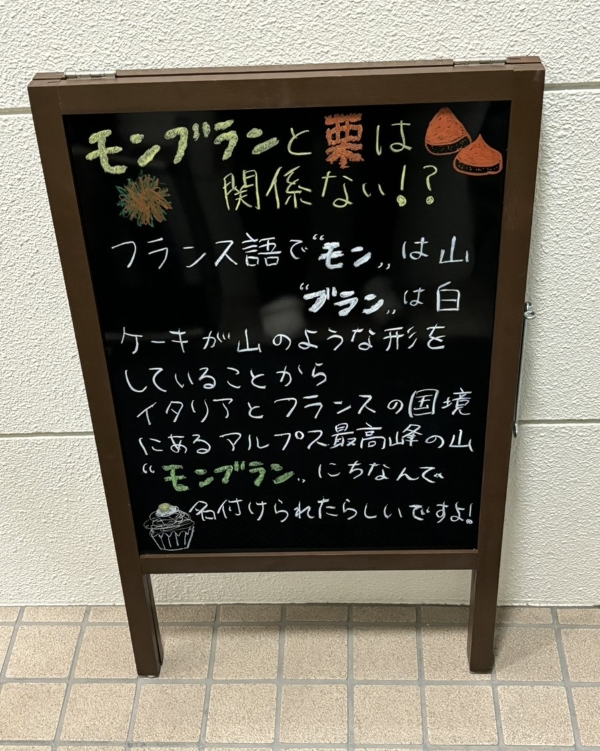 モンブランと栗は
関係ない!?
フランス語で“モン„は山
“ブラン„は白
ケーキが山のような形を
していることから
イタリアとフランスの国境
にあるアルプス最高峰の山
“モンブラン„にちなんで
名付けられたらしいですよ!